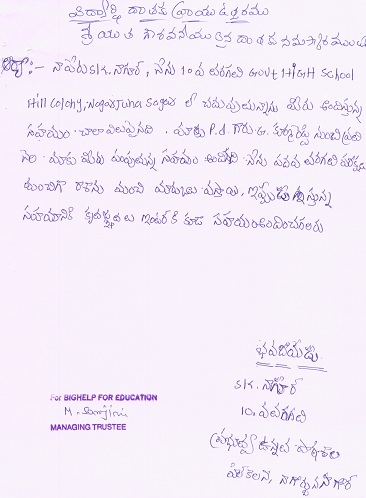 విద్యార్థి దాతకు వ్రాయు ఉత్తరము
ఆర్యా :- నా పేరు S/K. నాగూర్, నేను 10 వ తరగతి Govt High School
Hill Colony, Nagarjuna Sagar లో చదువుతున్నాను మీరు అందిస్తున్న
సహాయం చాలా విలువైనది. మాకు P.d. గారు G.
నెల మాకు మీరు పంపుతున్న సహాయం అందినది. నేను పదవ తరగతి
మంచిగా రాశాను మంచి మార్కులు వస్తాయి, ఇప్పుడు ఇస్తున్న
సహాయానికి కృతజ్ఞతలు ఇంటర్ కి కూడ సహాయం అందించగలరు
భవదీయుడు
S/K. నాగూర్
10. వ తరగతి
ప్రభుత్వ ఉన్నత పాఠశాల
హిల్ కాలనీ, నాగార్జున సాగర్
For BIGHELP FOR EDUCATION
MANAGING TRUSTEE